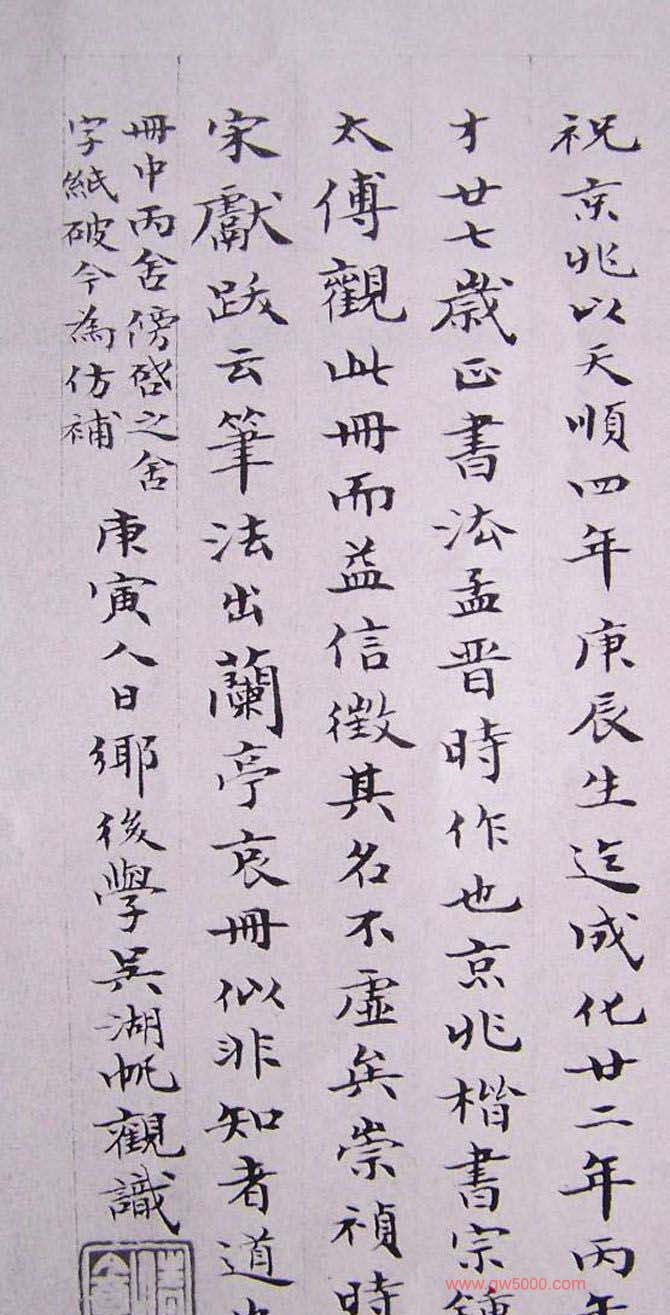 祝京兆以天順四年庚辰生迄成化廿二年丙午
才廿七歲正書法孟晉時作也京兆楷書宗鍾
太傅觀此冊而益信徵其名不虛矣崇禎時
宋獻跋云筆法出蘭亭哀冊似非知者道
冊中丙舍傍啓之舍
字紙破今為仿補
庚寅人日鄉後學吳湖帆觀識
www.gw5000.com